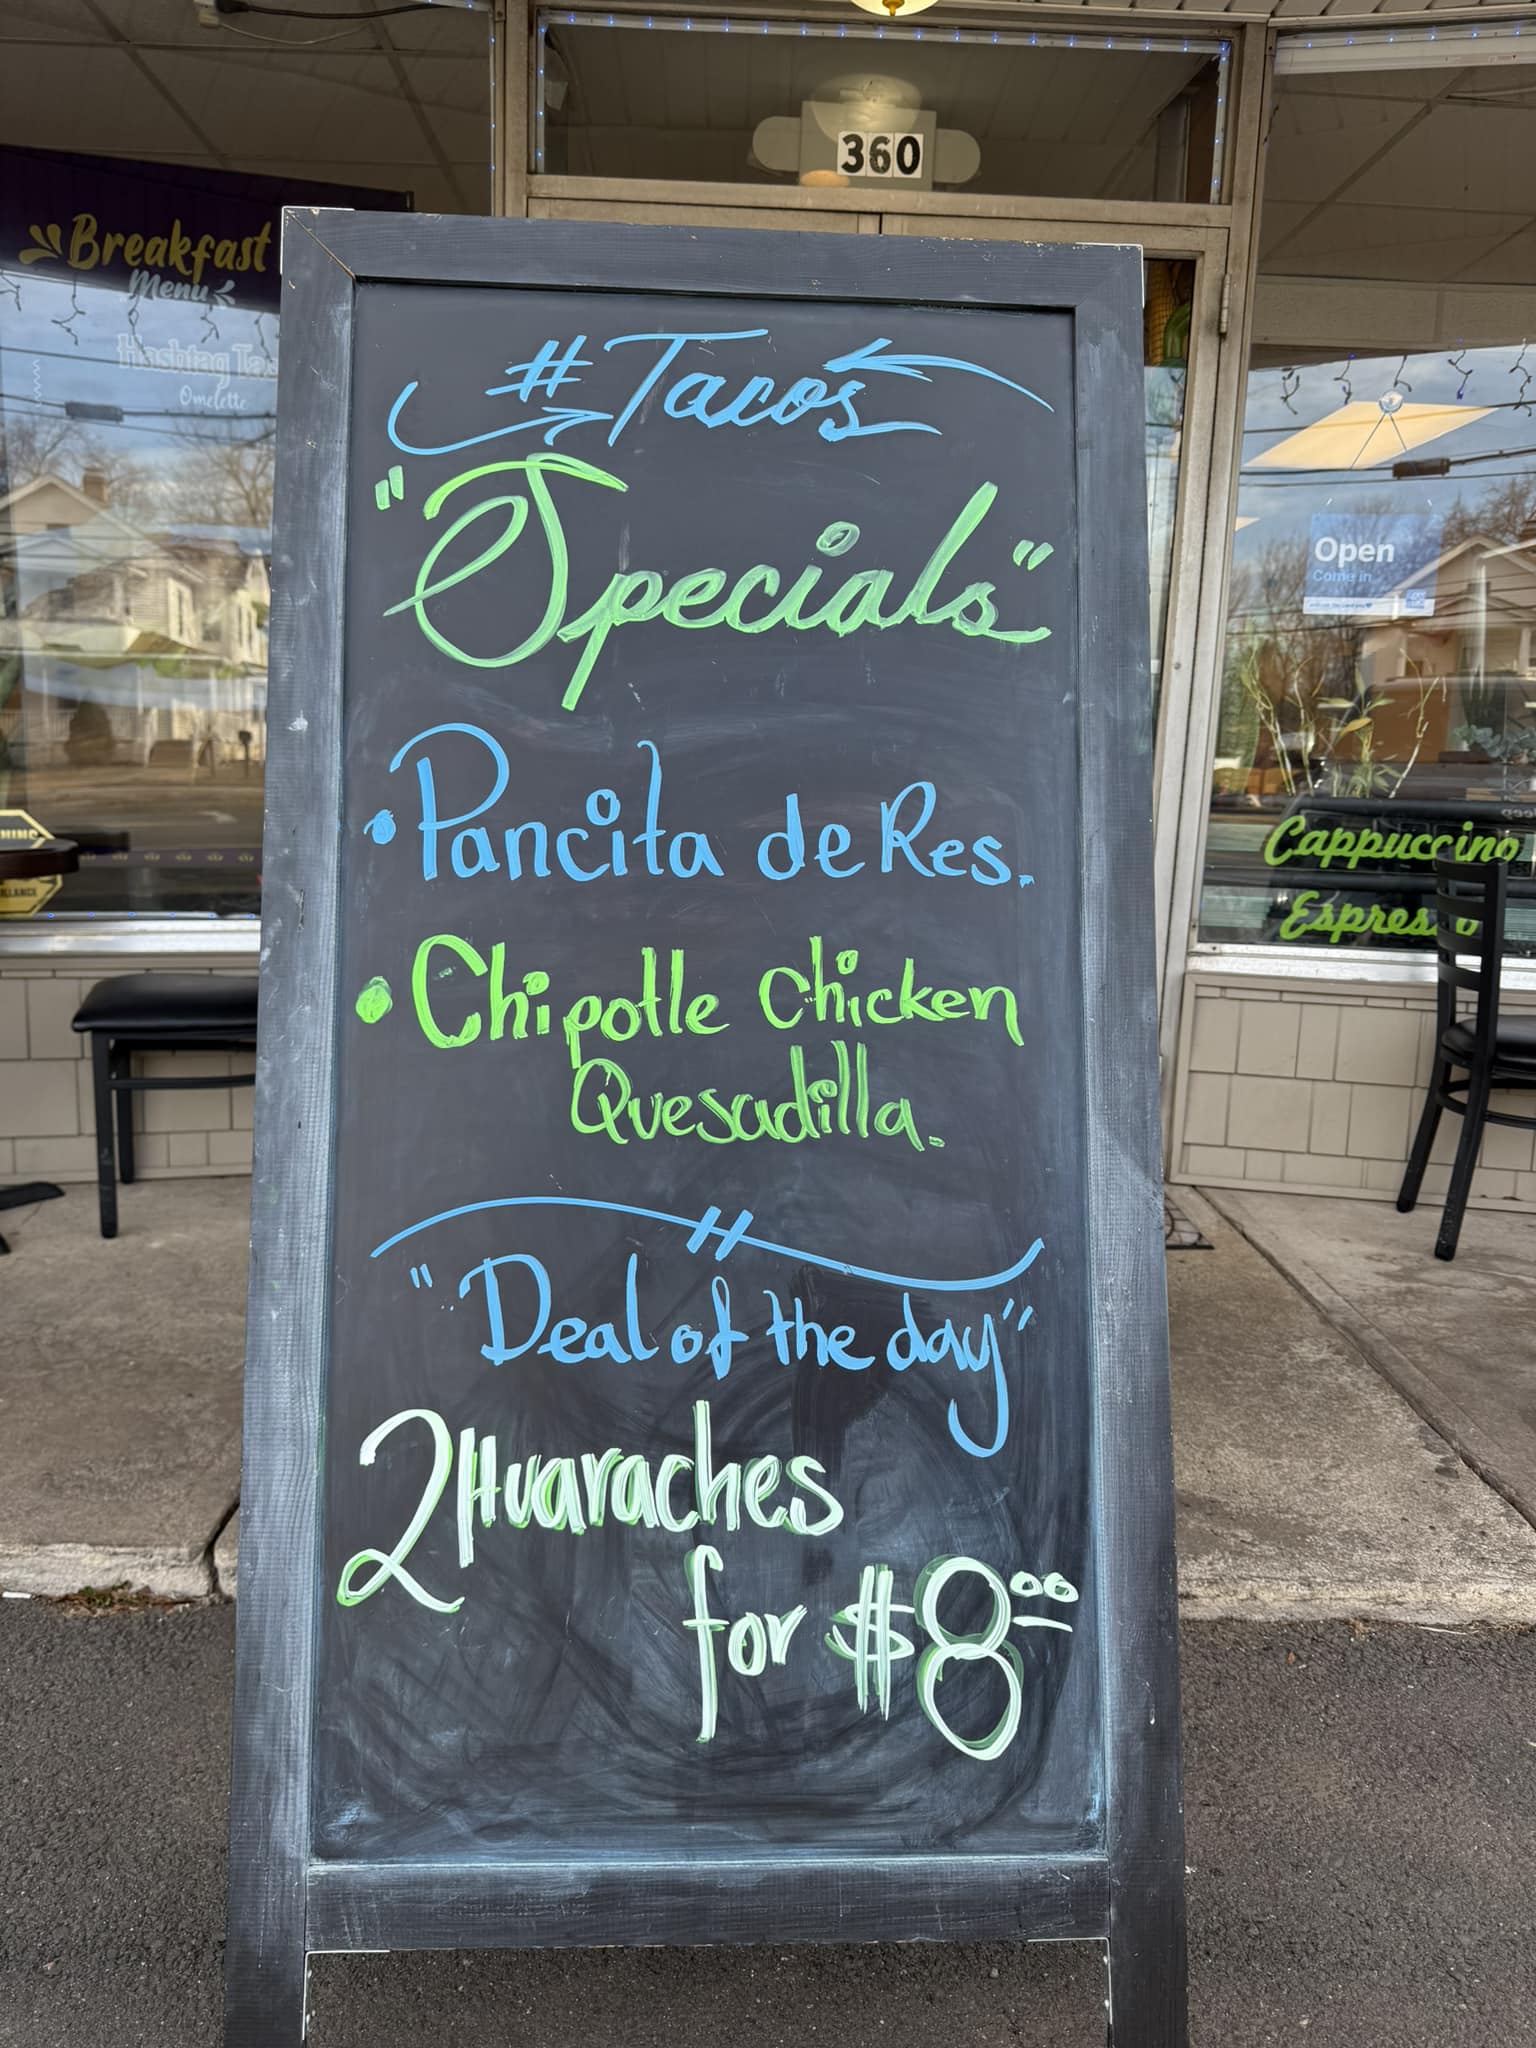 360
Breakfast
Menu
Hashtag
Omelette
#Tacos
"Specials"
• Pancita de Res.
• Chipotle Chicken
Quesadilla.
"Deal of the day"
2 Huaraches
for $8.00
Open
Come in
Cappuccino
Espresso